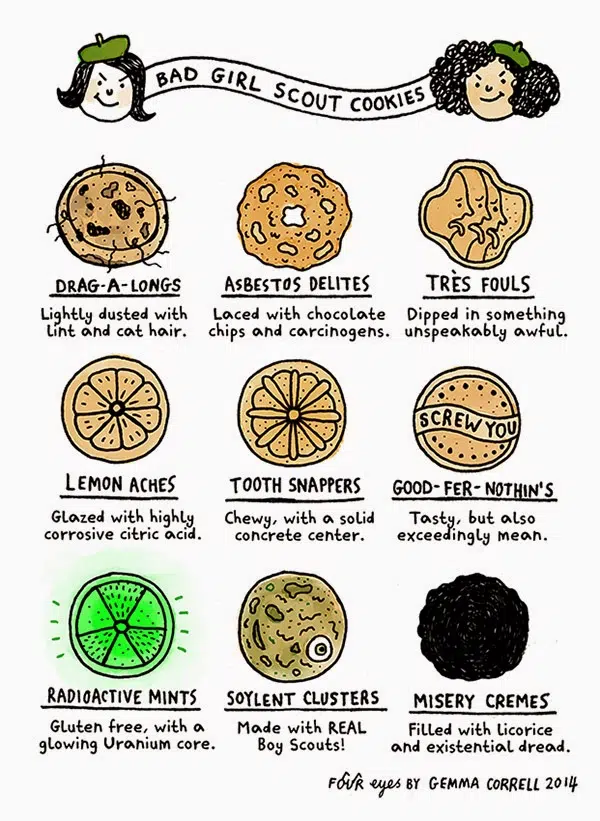 BAD GIRL SCOUT COOKIES
DRAG-A-LONGS
Lightly dusted with
lint and cat hair.
ASBESTOS DELITES
Laced with chocolate
chips and carcinogens.
TRÈS FOULS
Dipped in something
unspeakably awful.
LEMON ACHES
Glazed with highly
corrosive citric acid.
TOOTH SNAPPERS
Chewy, with a solid
concrete center.
SCREW YOU
GOOD-FER-NOTHIN'S
Tasty, but also
exceedingly mean.
RADIOACTIVE MINTS
Gluten free, with a
glowing Uranium core.
SOYLENT CLUSTERS
Made with REAL
Boy Scouts!
MISERY CREMES
Filled with licorice
and existential dread.
FOUR eyes BY GEMMA CORRELL 2014